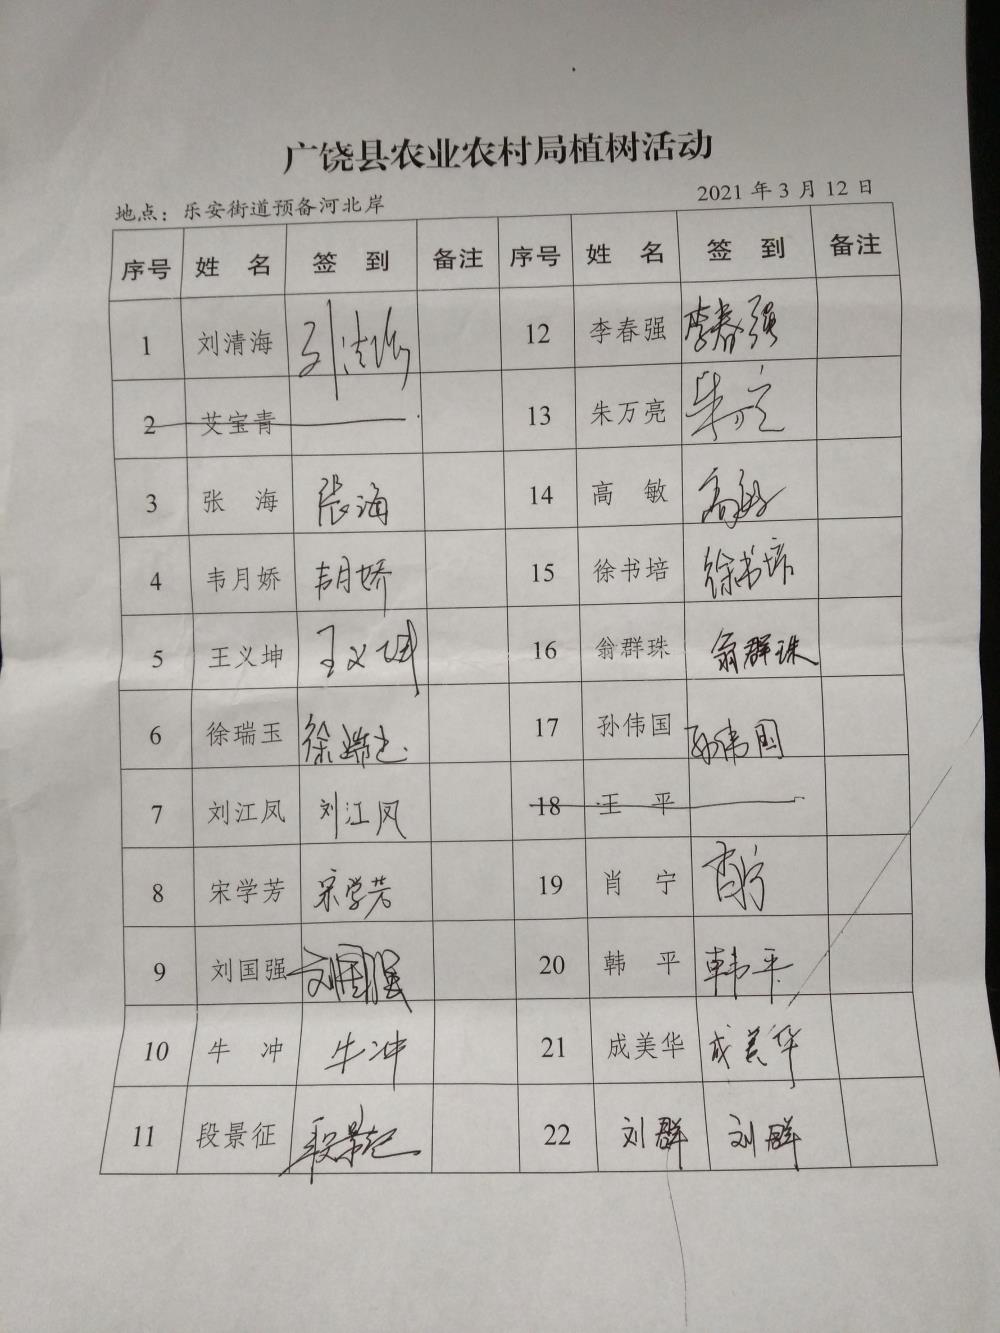 广饶县农业农村局植树活动
地点：乐安街道预备河北岸 2021 年 3 月 12 日
序号 姓 名 签 到 备注 序号 姓 名 签 到 备注
1 刘清海 刘清海 12 李春强 李春强
2 艾宝青 13 朱万亮 朱万亮
3 张 海 张海 14 高 敏 高敏
4 韦月娇 韦月娇 15 徐书培 徐书培
5 王义坤 王义坤 16 翁群珠 翁群珠
6 徐瑞玉 徐瑞玉 17 孙伟国 孙伟国
7 刘江凤 刘江凤 18 王 平
8 宋学芳 宋学芳 19 肖 宁 肖宁
9 刘国强 刘国强 20 韩 平 韩平
10 牛 冲 牛冲 21 成美华 成美华
11 段景征 段景征 22 刘群 刘群